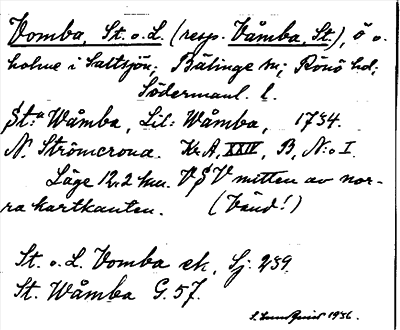 Vomba, St. o. L. (resp. Våmba, St.), ö o.
holme i Saltsjön; Bälinge sn; Rönö hd;
Södermanl. l.
St:a Wåmba, Lil: Wåmba, 1734.
N. Strömcrona. Kr. A, XXIV, B, N:o I.
Läge 12,2 km. VSV mitten av nor-
ra kartkanten. (Vänd!)
St. o. L. Vomba ek, Sj: 239.
St. Wåmba G. 57.
1936.